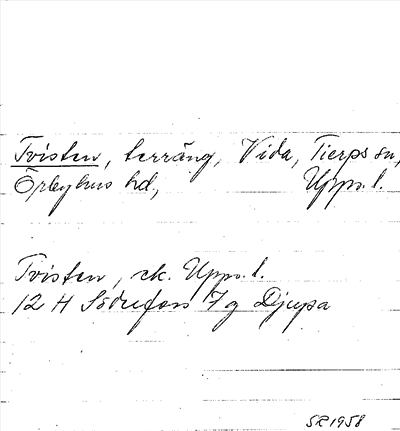 Tvisten, terräng, Vida, Tierps sn,
Örbyhus hd, Upps. l.
Tvisten, ek. Upps. l.
12 H Söderfors 7 g Djupa
SR 1958